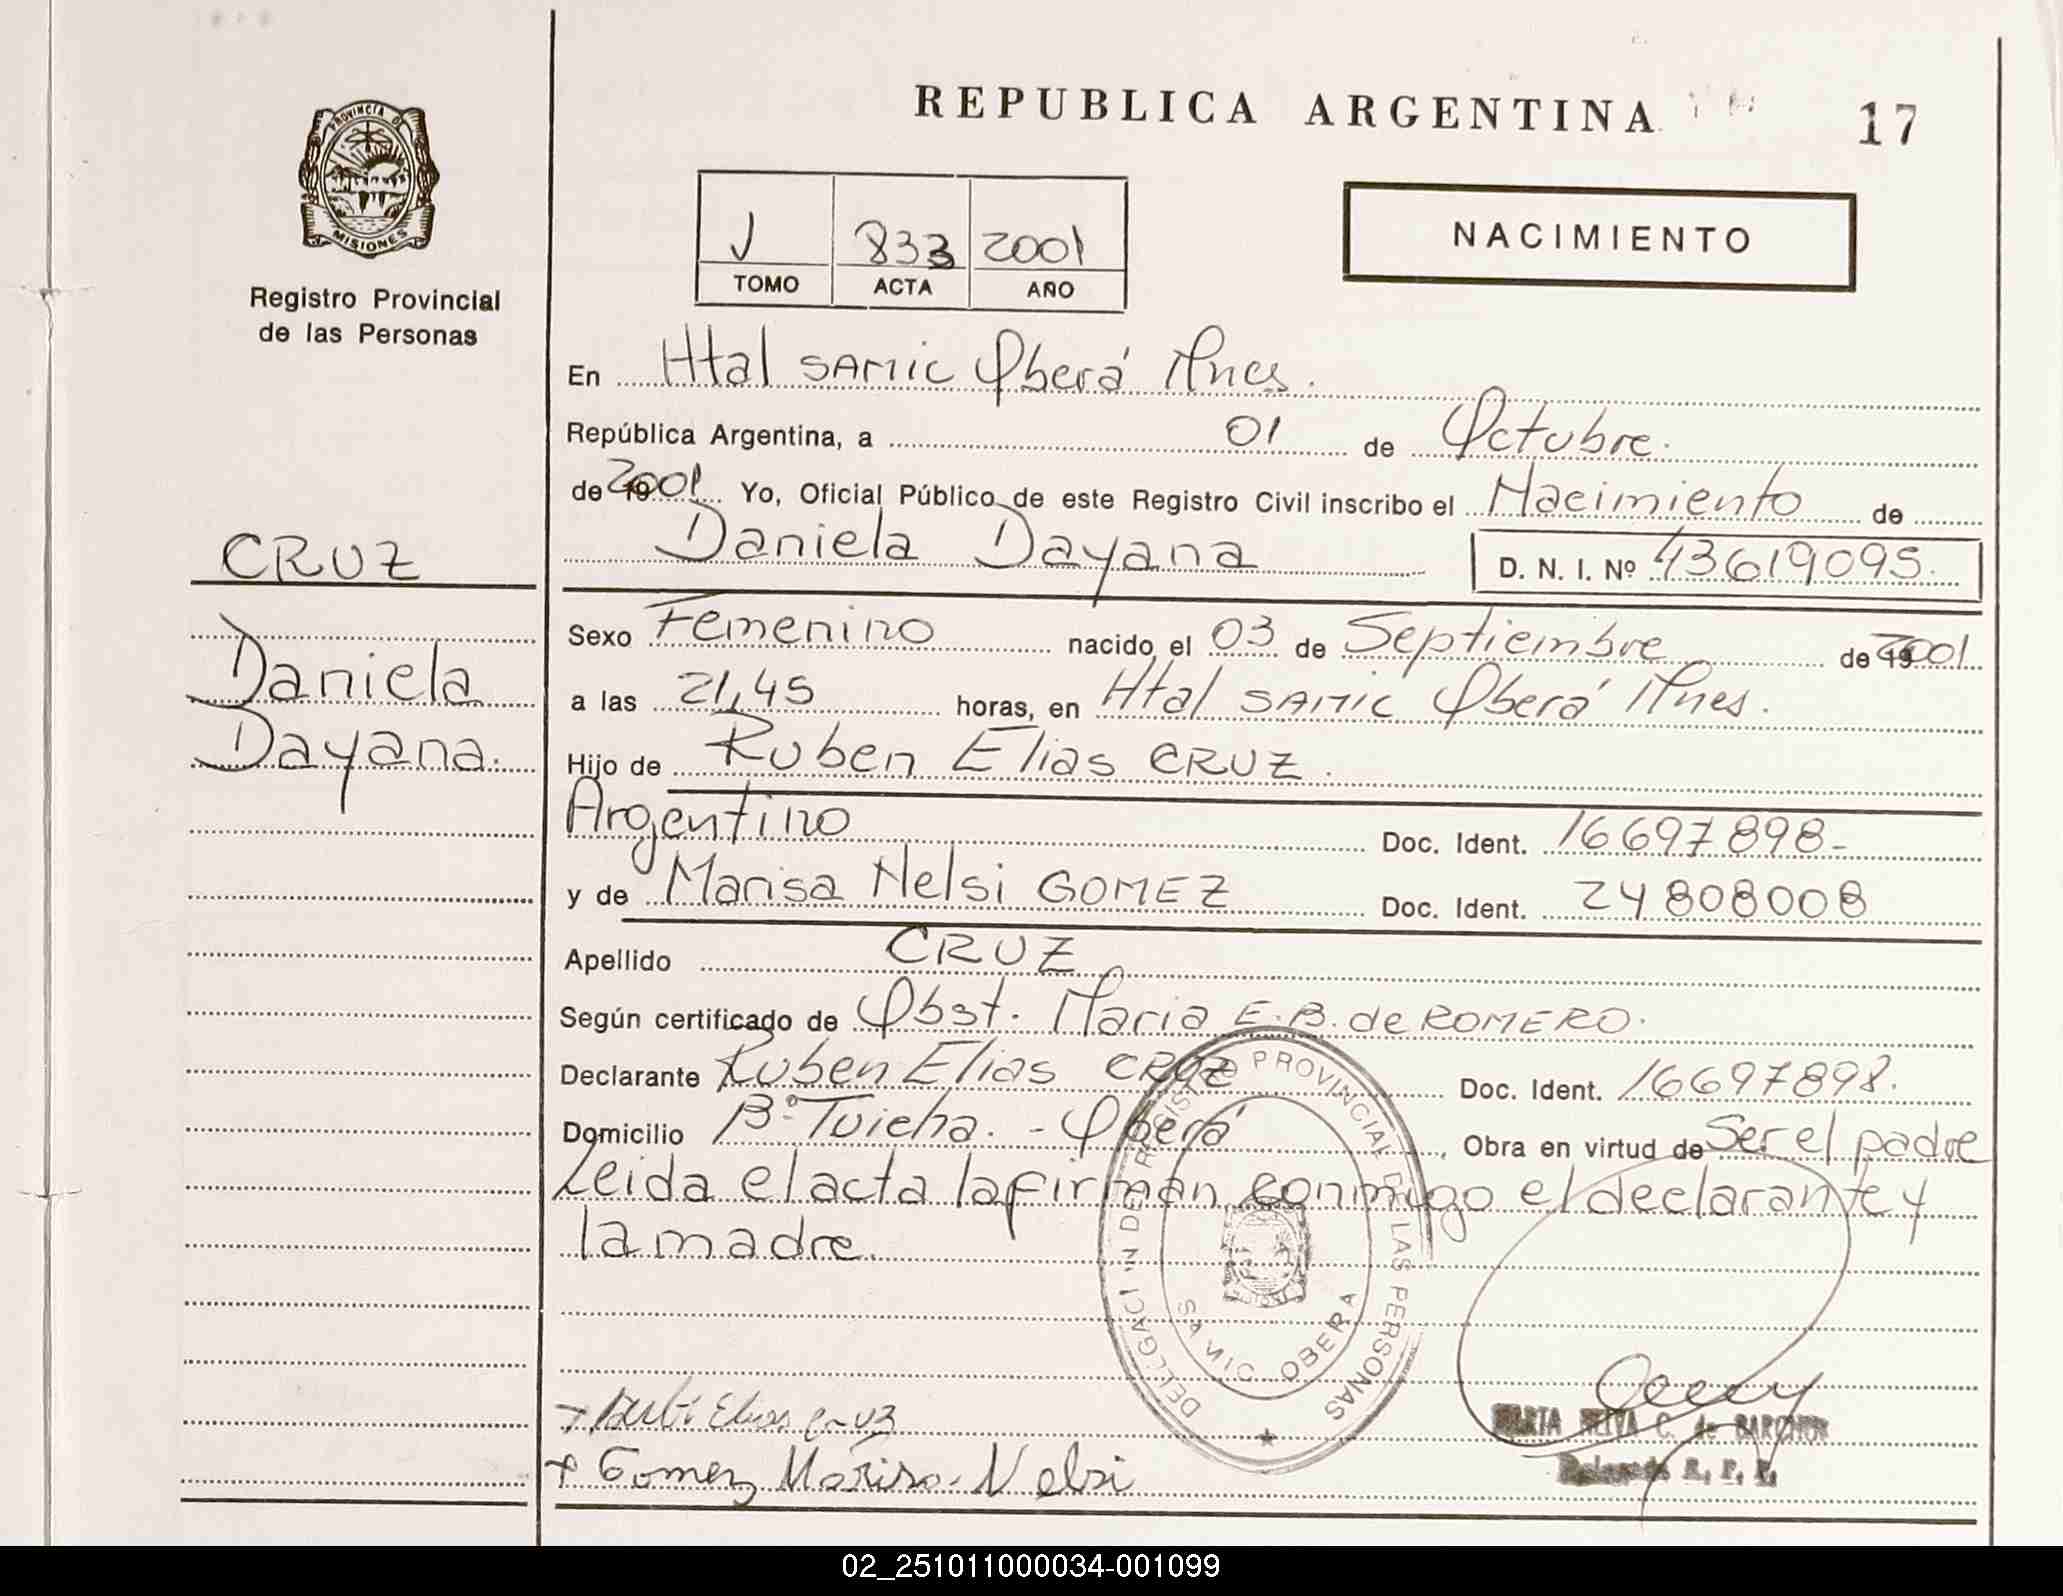 REPUBLICA ARGENTINA
17
PROVINCIA DE
MISIONES
Registro Provincial
de las Personas
J 833 2001
TOMO ACTA AÑO
NACIMIENTO
En Htal SAMIC Oberá Mnes.
República Argentina, a 01 de Octubre.
de 2001 Yo, Oficial Público de este Registro Civil inscribo el Nacimiento de
Daniela Dayana D. N. I. Nº 43619095.
CRUZ
Daniela
Dayana.
Sexo Femenino nacido el 03 de Septiembre de 2001
a las 21,45 horas, en Htal SAMIC Oberá Mnes.
Hijo de Ruben Elias CRUZ.
Argentino Doc. Ident. 16697898-
y de Marisa Nelsi GOMEZ Doc. Ident. 24808008
Apellido CRUZ
Según certificado de Obst. Maria E. B. de ROMERO.
Declarante Ruben Elias CRUZ Doc. Ident. 16697898.
Domicilio Bº Tuicha. - Oberá, Obra en virtud de Ser el padre
Leida el acta la firman conmigo el declarante y
la madre.
REGISTRO PROVINCIAL DE LAS PERSONAS
SAMIC OBERA
Elias Cruz
+ Gomez Marisa Nelsi
C. de
R. P. P.
02_251011000034-001099